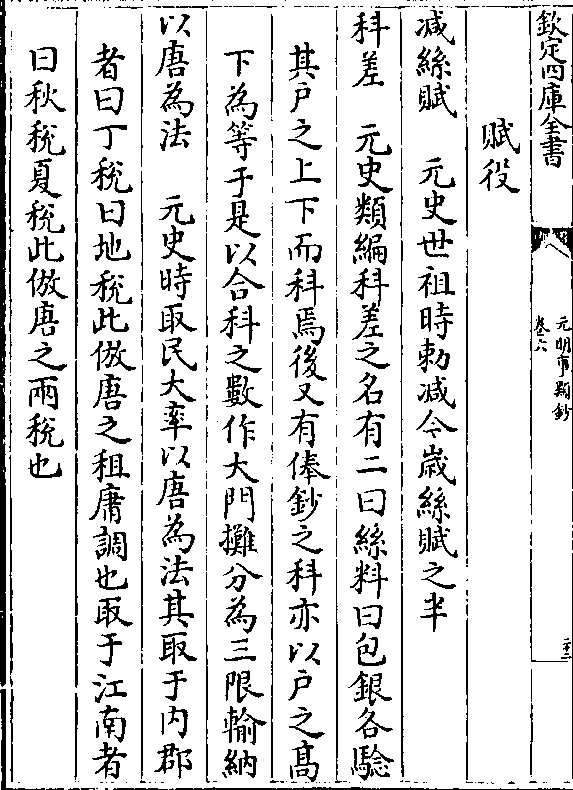 欽定四庫全書
元明事類鈔
卷六
二十二
賦役
減絲賦　元史世祖時勅減今歲絲賦之半
科差　元史類編科差之名有二曰絲料曰包銀各驗
其戶之上下而科焉後又有俸鈔之科亦以戶之髙
下為等于是以合科之數作大門攤分為三限輸納
以唐為法　元史時取民大率以唐為法其取于内郡
者曰丁稅曰地稅此倣唐之租庸調也取于江南者
曰秋稅夏稅此倣唐之兩稅也